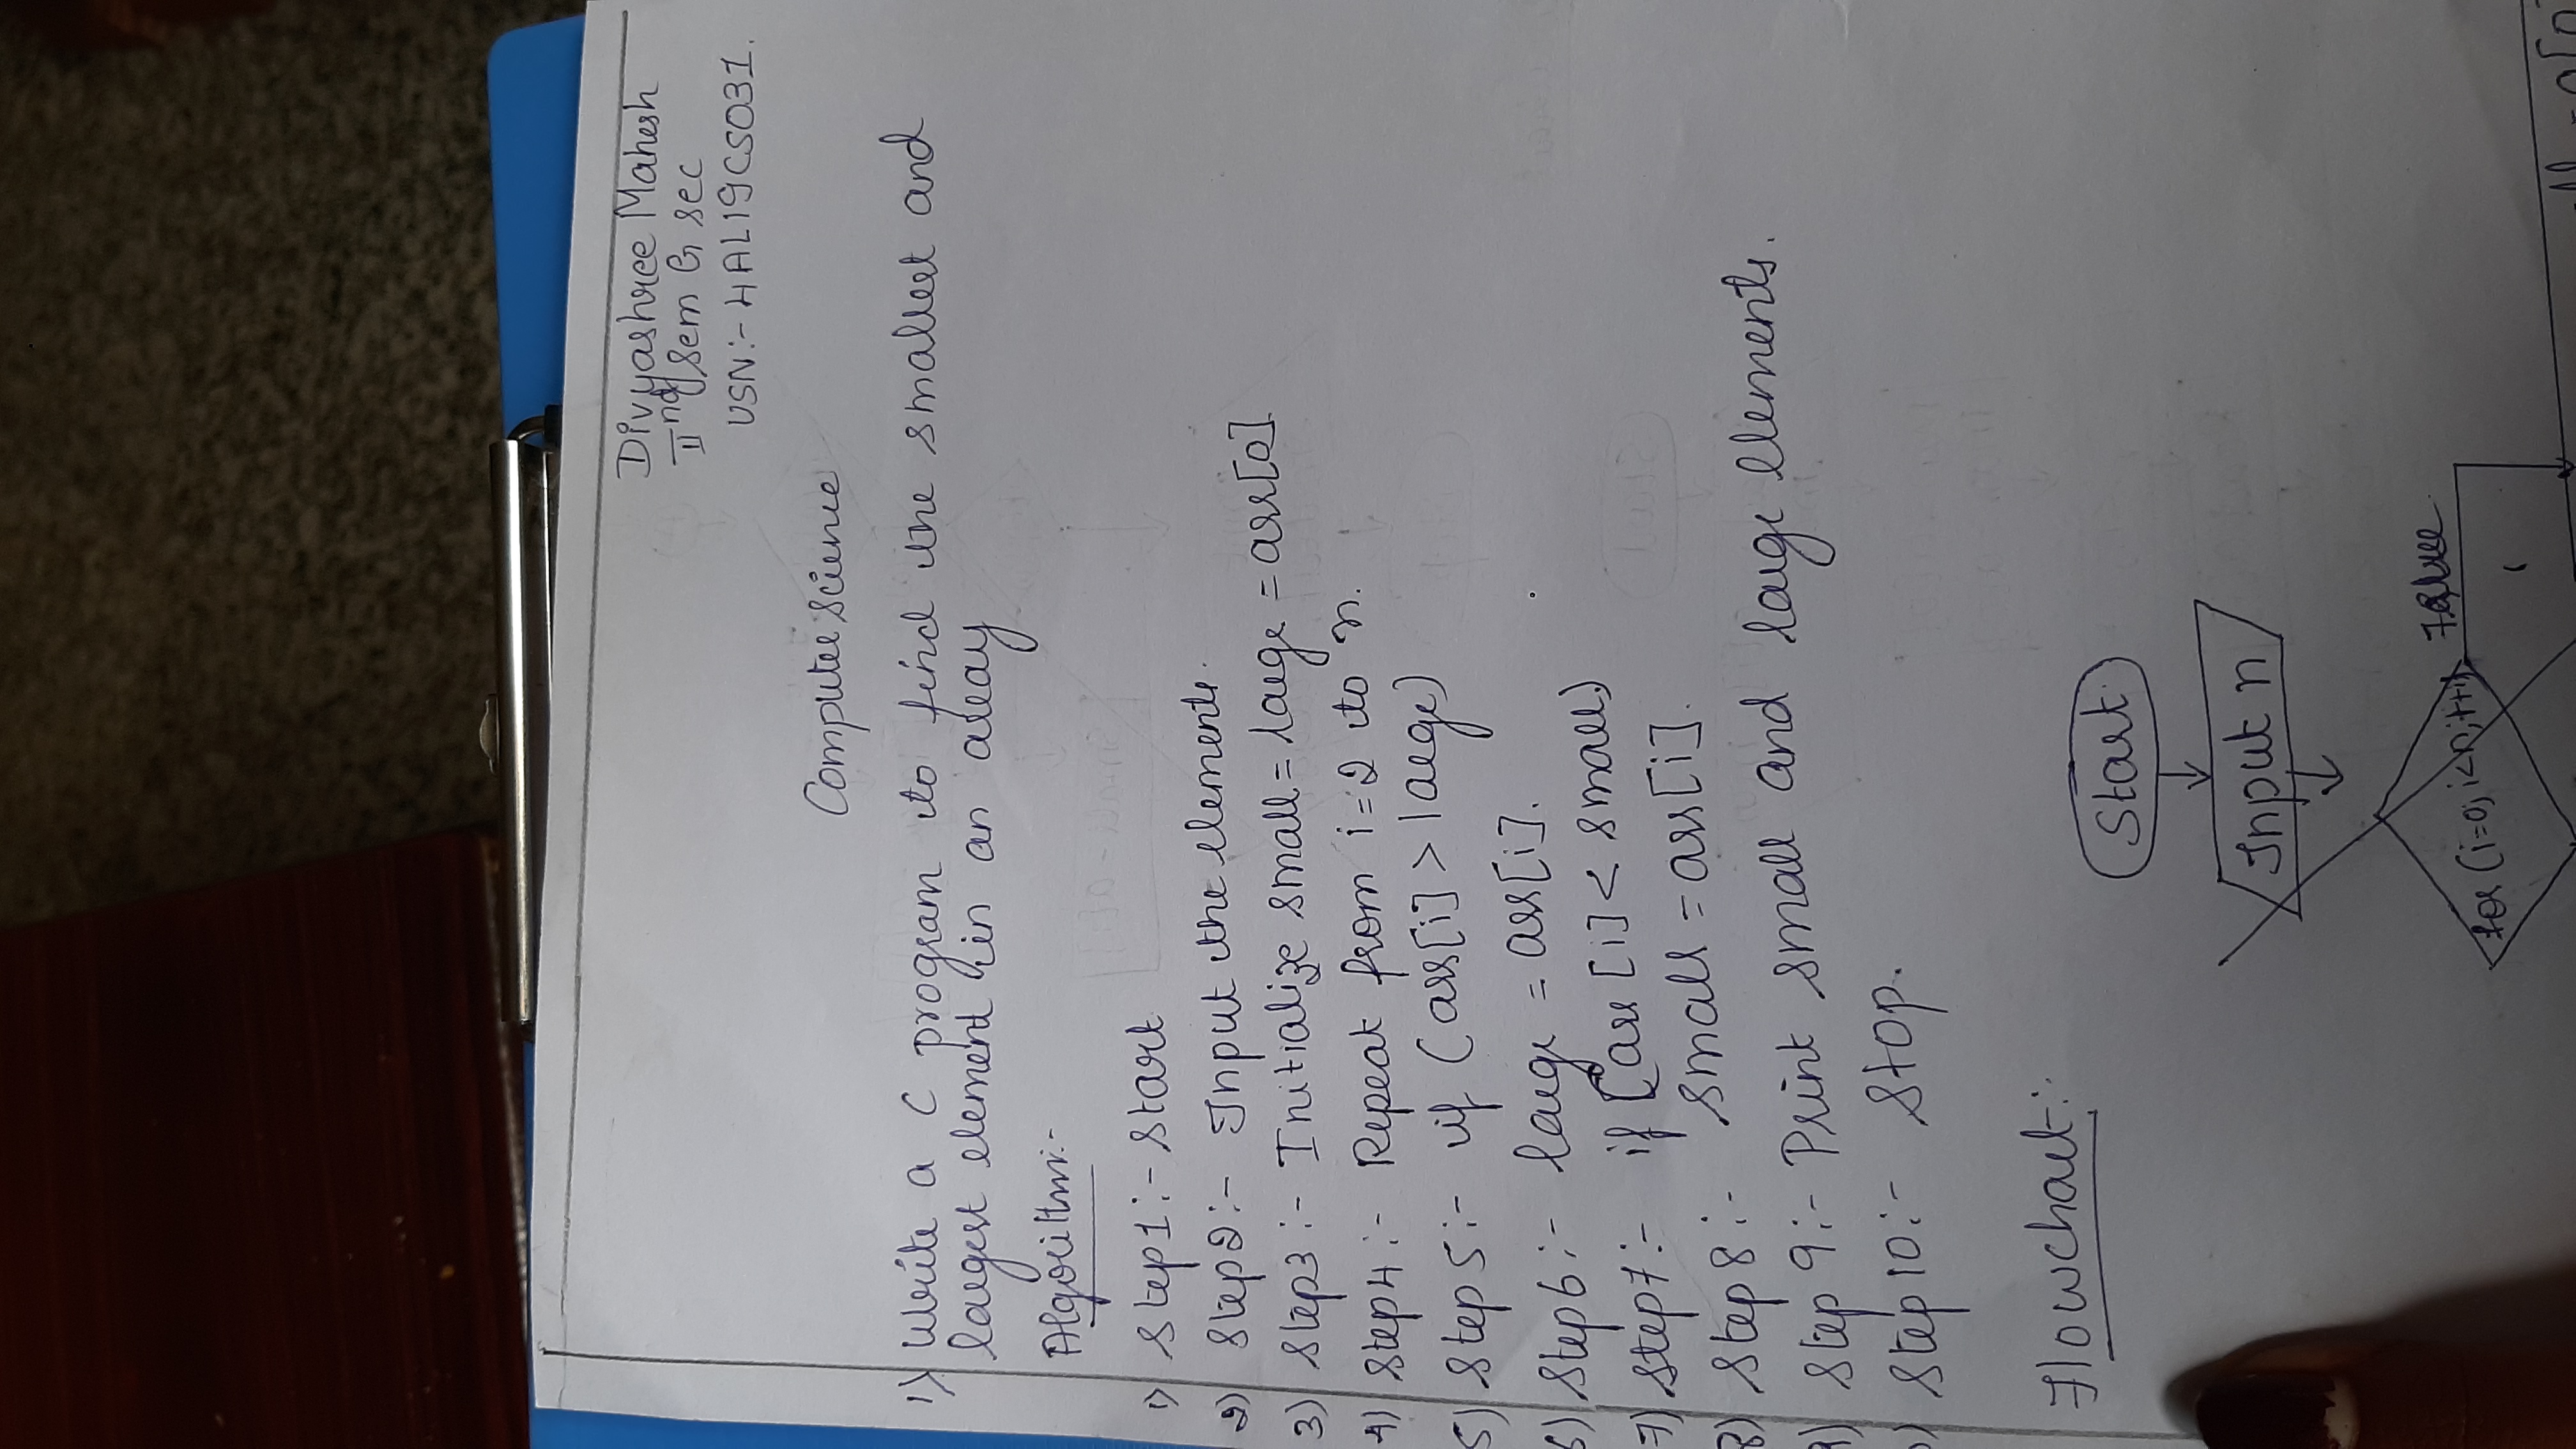 Divyashree Mahesh
IInd Sem G sec
USN:- 4AL19CS031.
Computer Science
1) Write a C program to find the smallest and
largest element in an array
Algorithm:-
1) Step1:- Start
2) Step2:- Input the elements.
3) Step3:- Initialize small = large = arr[0]
4) Step4:- Repeat from i=2 to n.
5) Step5:- if (arr[i] > large)
6) Step6:- large = arr[i].
7) Step7:- if (arr[i] < small)
8) Step8:- small = arr[i].
9) Step 9:- Print small and large elements.
) Step10:- Stop.
Flowchart:-
Start
Input n
for (i=0; i<n; i++)